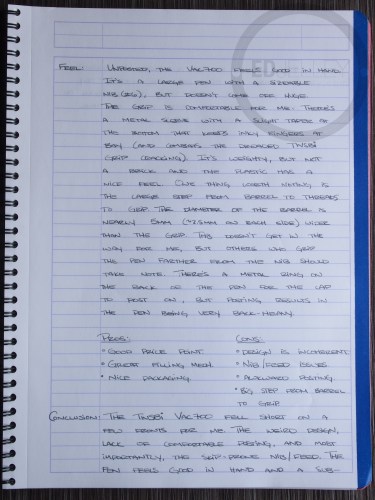 Feel: Unposted, the Vac700 feels good in hand.
It's a large pen with a sizeable
nib (#6), but doesn't come off huge.
The grip is comfortable for me. There's
a metal sleeve with a slight taper at
the bottom that keeps inky fingers at
bay (and combats the TWSBI
grip cracking). It's weighty, but not
a brick and the plastic has a
nice feel. One thing worth noting is
the large step from barrel to threads
to grip. The diameter of the barrel is
nearly 5mm (~2.5mm on each side) wider
than the grip. This doesn't get in the
way for me, but others who grip
the pen farther from the nib should
take note. There's a metal ring on
the back of the pen for the cap
to post on, but posting results in
the pen being very back-heavy.
Pros:
• Good price point
• Great filling mech.
• Nice packaging
Cons:
• Design is incoherent
• Nib/feed issues
• Awkward posting
• Big step from barrel
to grip
Conclusion: The TWSBI Vac700 fell short on a
few fronts for me. The weird design,
lack of comfortable posting, and most
importantly, the skip-prone nib/feed. The
pen feels good in hand and a sub-